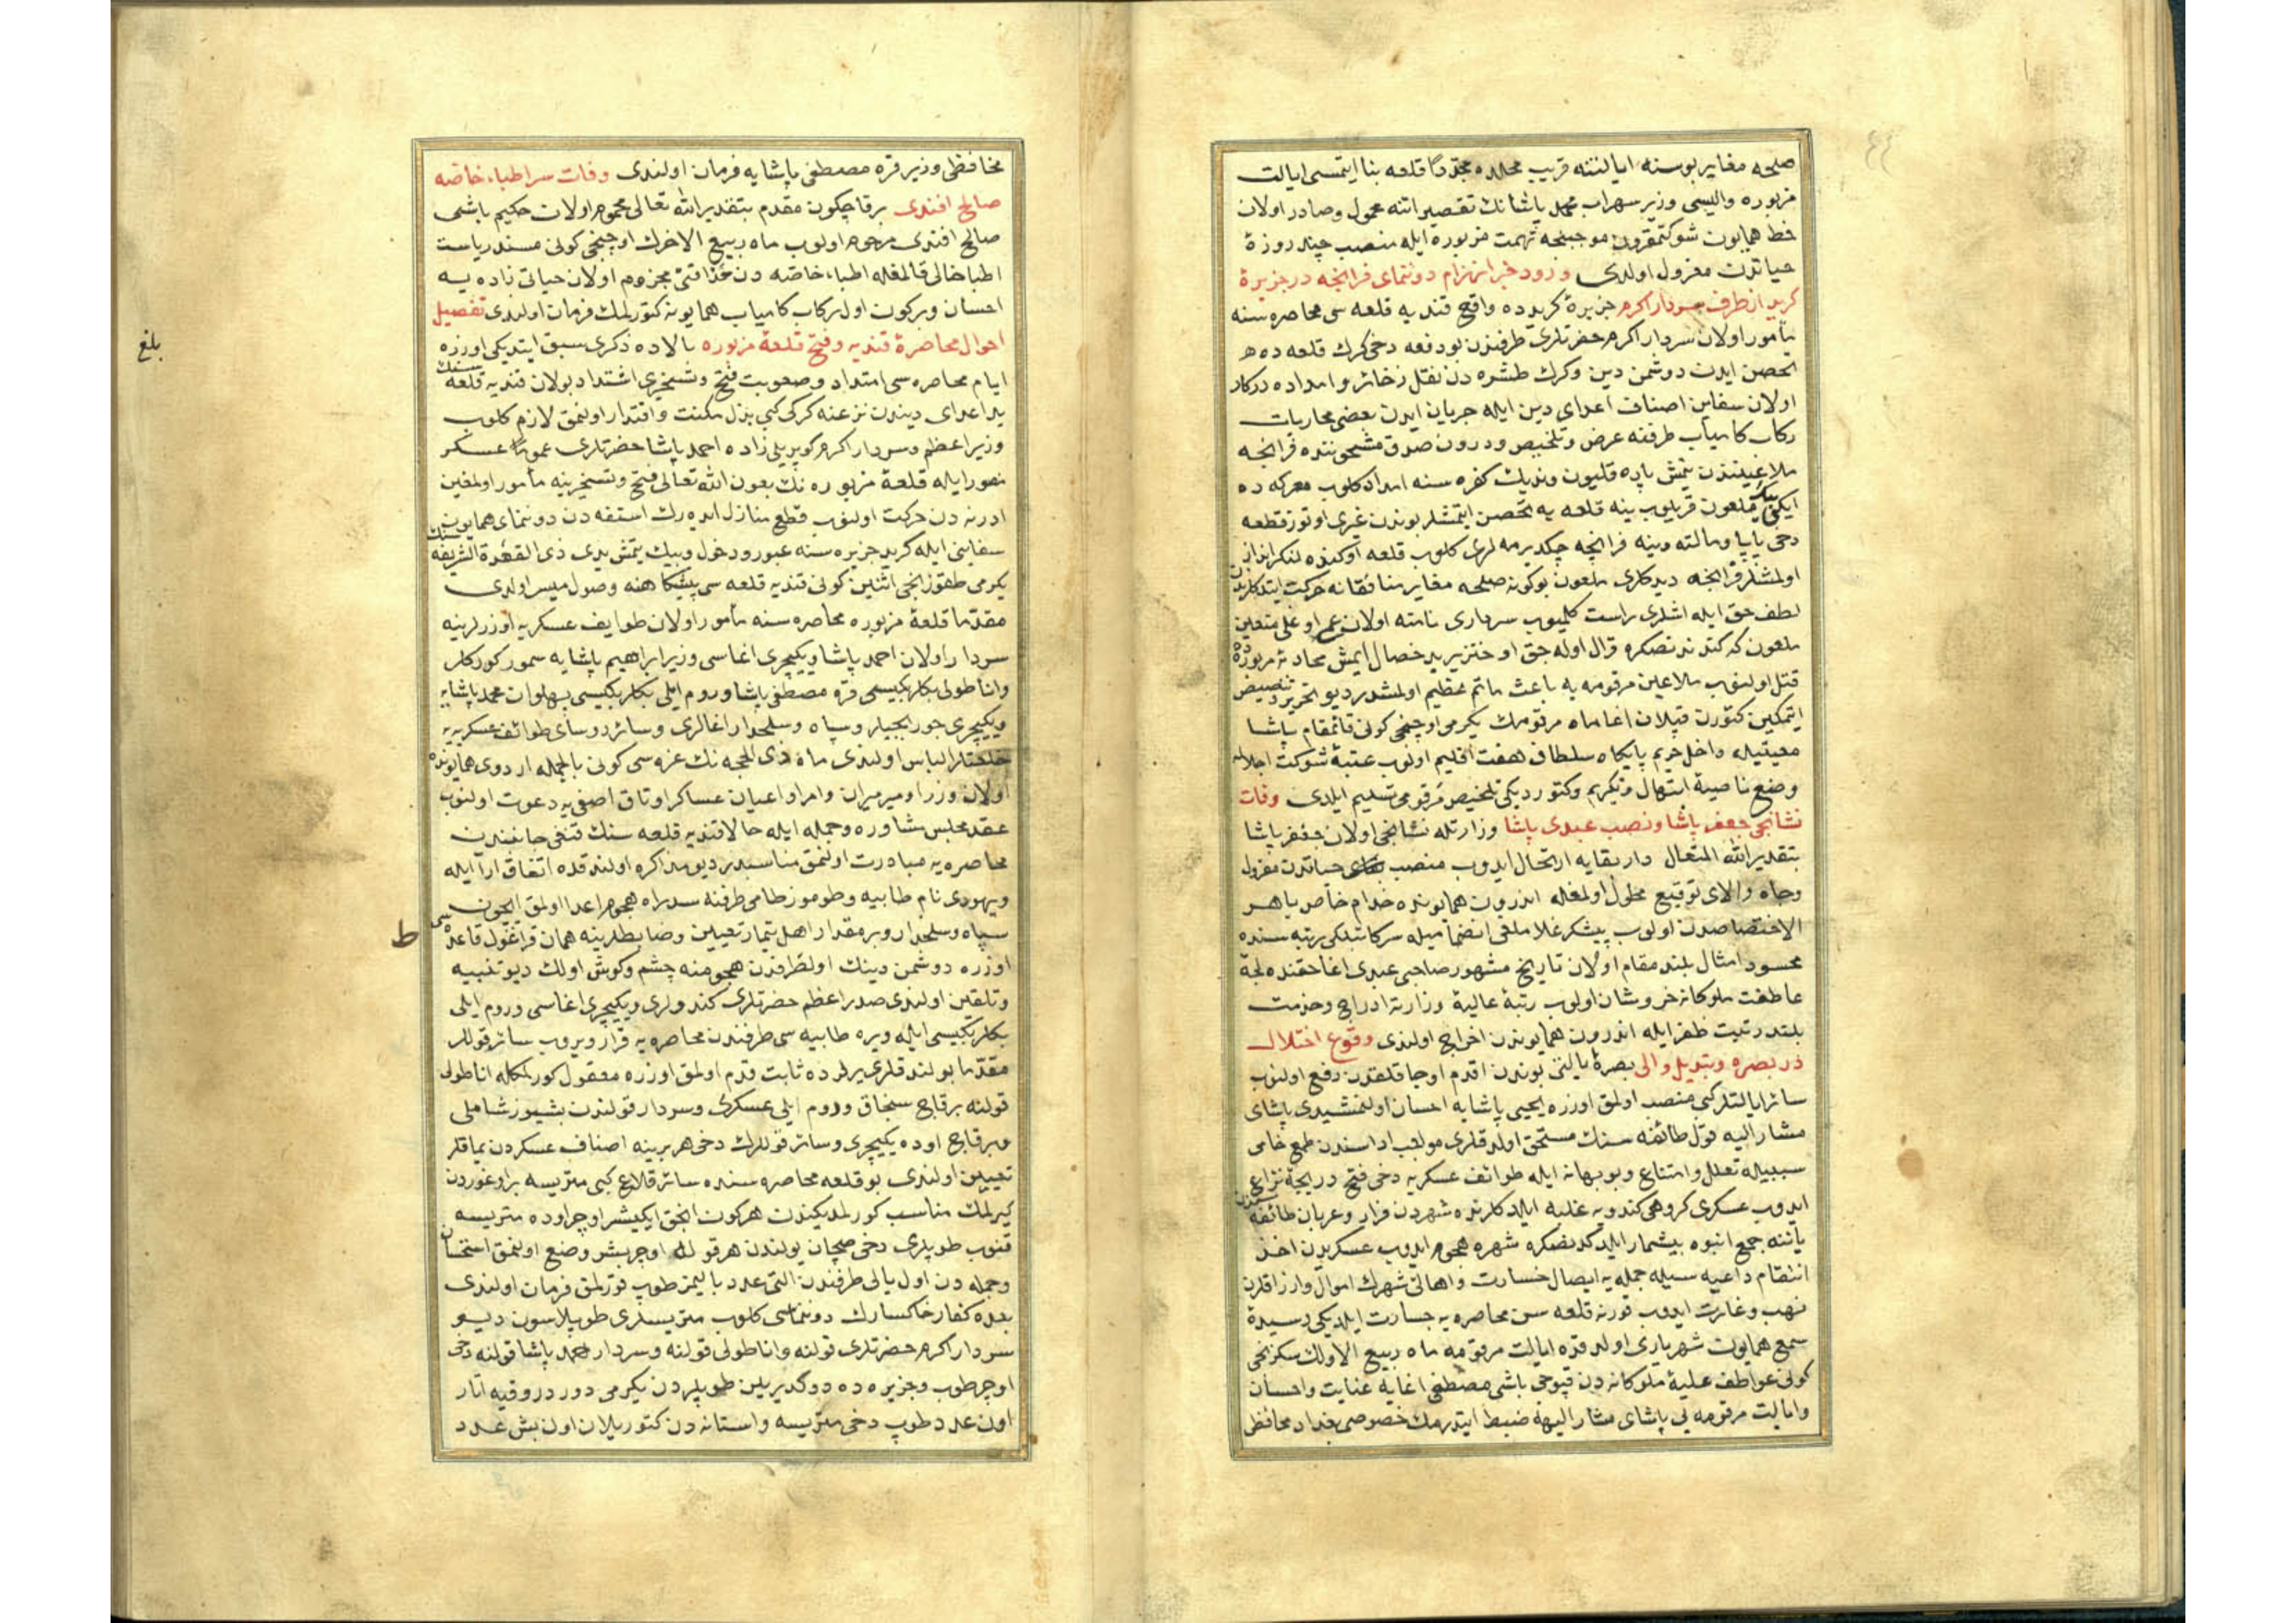 ٤٤
صلحه مغاير بوسنه ايالتنه قريب محلده مجددًا قلعه بنا ايتمسى ايالت
مزبوره واليسى وزير سهراب محمد پاشانك تقصيراتنه محمول وصادر اولان
خط همايون شوكتمقرون موجبنجه تهمت مزبوره ايله منصب چند روزۀ
حياتدن معزول اولدى ورود خبر انهزام دوننماى فرانچه در جزيرۀ
كريد از طرف سردار اكرم جزيرۀ كريدده واقع قنديه قلعه سى محاصره سنه
مأمور اولان سردار اكرم حضرتلرى طرفندن بو دفعه دخى كرك قلعه ده
تحصن ايدن دوشمن دين وكرك طشره دن نقل ذخائر و امداده دركار
اولان سفاين اصناف اعداى دين ايله جريان ايدن بعضى محاربات
ركاب كامياب طرفنه عرض وتلخيص ودرون صدق مشحوننده فرانچه
ملاعيننندن يتمش پاره قليون ونديك كفره سنه امداد كلوب معركه ده
ايكى بيك ملعون قريلوب ينه قلعه يه تحصن ايتمشلر بوندن غيرى اوتوز قطعه
دخى پاپا ومالته وينه فرانچه چكديرمه لرى كلوب قلعه اوكنده لنكر انداز
اولمشلر فرانچه ديدكلرى ملعون بوكونه صلحه مغاير منافقانه حركت ايتدكلرندن
لطف حق ايله اشلرى راست كلميوب سردارى نامنه اولان عم اوغلى متعين
ملعون كه كندندنصكره قرال اوله جق او خنزير بد خصال ايمش محاربۀ مزبوره ده
قتل اولنوب ملاعين مرقومه يه باعث ماتم عظيم اولمشدر ديو تحرير وتنصيص
ايتمكين كتورن قپلان اغا ماه مرقومك يكرمى اوچنجى كونى قائممقام پاشا
معيتيله داخل حريم پايكاه سلطان هفت اقليم اولوب عتبۀ شوكت اجلاله
وضع ناصيۀ ابتهال وتكريم وكتورديكى تلخيص مرقومى تسليم ايلدى وفات
نشانجى جعفر پاشا ونصب عبدى پاشا وزارتله نشانجى اولان جعفر پاشا
بتقدير الله المتعال دار بقايه ارتحال ايدوب منصب حياتدن معزول
وجاه والاى توقيع محلول اولمغله اندرون همايونده خدام خاص باهر
الاختصاصدن اولوب پيشكر غلاملقى انضماميله سركاتبلكى رتبه سنده
محسود امثال بلند مقام اولان تاريخ مشهور صاحبى عبدى اغا حقنده لجۀ
عاطفت ملوكانه خروشان اولوب رتبۀ عاليۀ وزارته ادراج وخدمت
بلند رتبت ظفر ايله اندرون همايوندن اخراج اولندى وقوع اختلال
در بصره وتبديل والى بصره ايالتى بوندن اقدم اوجاقلقدن رفع اولنوب
سائر ايالتلر كبى منصب اولمق اوزره يحيى پاشايه احسان اولنمشيدى پاشاى
مشار اليه قول طائفه سنك مستحق اولدقلرى مواجب اداسندن طمع خامى
سببيله تعلل وامتناع وبو بهانه ايله طوائف عسكريه دخى فتح دريچۀ نزاع
ايدوب عسكرى كروهى كندويه غلبه ايلدكلرنده شهردن فرار وعربان طائفه سندن
ياننه جمع انبوه بيشمار ايلدكدنصكره شهره هجوم ايدوب عسكريدن اخذ
انتقام داعيه سيله جمله يه ايصال خسارت واهالئ شهرك اموال وارزاقلرن
نهب وغارت ايدوب قورنه قلعه سن محاصره يه جسارت ايلديكى رسيدۀ
سمع همايون شهريارى اولدقده ايالت مرقومه ماه ربيع الاولك سكزنجى
كونى عواطف عليۀ ملوكانه دن قپوجى باشى مصطفى اغايه عنايت واحسان
وايالت مرقومه يى پاشاى مشار اليهه ضبط ايتدرمك خصوصى بغداد محافظى
محافظى وزير قره مصطفى پاشايه فرمان اولندى وفات سر اطباء خاصه
صالح افندى برقاچ كون مقدم بتقدير الله تعالى محموم اولان حكيم باشى
صالح افندى مرحوم اولوب ماه ربيع الاخرك اوچنجى كونى مسند رياست
اطبا خالى قالمغله اطباء خاصه دن حذاقتى مجزوم اولان حياتى زاده يه
احسان وبركون اول ركاب كامياب همايونه كتورلمك فرمان اولندى تفصيل
احوال محاصرۀ قنديه وفتح قلعۀ مزبوره بالاده ذكرى سبق ايتديكى اوزره
ايام محاصره سى امتداد وصعوبت فتح وتسخيرى اشتداد بولان قنديه قلعه سنك
يد اعداى ديندن نزعنه كركى كبى بذل مكنت واقتدار اولنمق لازم كلوب
وزير اعظم وسردار اكرم كوپريلى زاده احمد پاشا حضرتلرى عمومًا عسكر
منصور ايله قلعۀ مزبوره نك بعون الله تعالى فتح وتسخيرينه مأمور اولمغين
ادرنه دن حركت اولنوب قطع منازل ايده رك استفه دن دوننماى همايون سنك
سفاينى ايله كريد جزيره سنه عبور ودخول وبيك يتمش يدى ذى القعدة الشريفه
يكرمى طقوزنجى اثنين كونى قنديه قلعه سى پيشكاهنه وصول ميسر اولدى
مقدما قلعۀ مزبوره محاصره سنه مأمور اولان طوايف عسكريه اوزرلرينه
سردار اولان احمد پاشا ويكيچرى اغاسى وزير ابراهيم پاشايه سمور كوركلر
واناطولى بكلربكيسى قره مصطفى پاشا وروم ايلى بكلربكيسى پهلوان محمد پاشايه
ويكيچرى چوربجيلر وسپاه وسلحدار اغالرى وسائر رؤساى طوائف عسكريه يه
خلعتلر الباس اولندى ماه ذى الحجه نك غره سى كونى بالجمله اردوى همايونده
اولان وزرا وميرميران وامرا واعيان عساكر اوتاق اصفى يه دعوت اولنوب
عقد مجلس مشاوره وجمله ايله حالا قنديه قلعه سنك قنغى جانبندن
محاصره يه مبادرت اولنمق مناسبدر ديو مذاكره اولندقده اتفاق آرا ايله
ويهودى نام طابيه وطوموز طامى طرفنه سد راه هجوم اعدا اولمق ايچون
سپاه وسلحدار وبر مقدار اهل تيمار تعيين وضابطلرينه همان قراغول قاعده سى
ط
اوزره دوشمن دينك اولطرفدن هجومنه چشم وكوش اولك ديو تنبيه
وتلقين اولندى صدر اعظم حضرتلرى كندولرى ويكيچرى اغاسى وروم ايلى
بكلربكيسى ايله ويره طابيه سى طرفندن محاصره يه قرار ويروب سائر قوللر
مقدما بولندقلرى يرلرده ثابت قدم اولمق اوزره معقول كورلمكله اناطولى
قولنه برقاچ سنجاق وروم ايلى عسكرى وسردار قولندن بشيوز شاملى
وبرقاچ اوده يكيچرى وسائر قوللرك دخى هر برينه اصناف عسكردن يماقلر
تعيين اولندى بو قلعه محاصره سنده سائر قلاع كبى متريسه براوغوردن
كيرلمك مناسب كورلمديكندن هركون انجق ايكيشر اوچر اوده متريسه
قنوب طوپلرى دخى صچان يولندن هر قولك اوچر بشر وضع اولنمق استحسان
وجمله دن اول يالى طرفندن التى عدد باليمز طوپ قورلمق فرمان اولندى
بعده كفار خاكسارك دوننماسى كلوب متريسلرى طوپلاسون ديو
سردار اكرم حضرتلرى قولنه واناطولى قولنه وسردار احمد پاشا قولنه دخى
اوچر طوپ وجزيره ده دوكديريلن طوپلردن يكرمى دورد وقيه اتار
اون عدد طوپ دخى متريسه واستانه دن كتوريلان اون بش عدد
بلغ